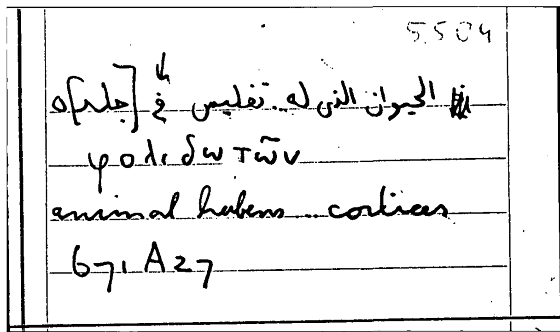 5504
الحيوان الذى له تفليس فى [جلده]
φολιδωτῶν
animal habens cortices
671 A 27